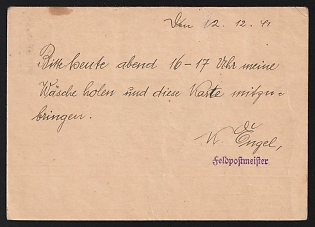 Den 12. 12. 41
Bitte heute abend 16-17 Uhr meine
Wäsche holen und diese Karte mitzu-
bringen.
Engel,
Feldpostmeister